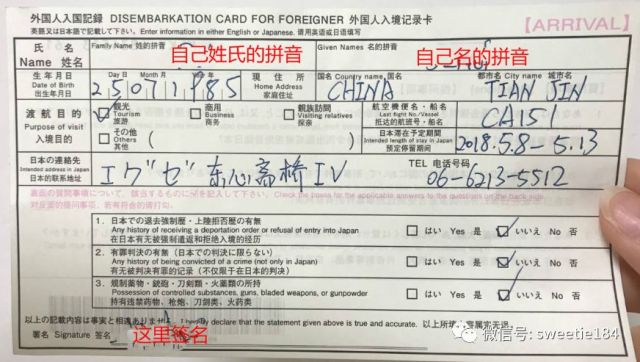 外国人入国記録 DISEMBARKATION CARD FOR FOREIGNER 外国人入境记录卡
英語又は日本語で記載して下さい。Enter information in either English or Japanese. 请用英语或日语填写
【ARRIVAL】
氏 名
Name 姓名
Family Name 姓的拼音
自己姓氏的拼音
Given Names 名的拼音
自己名的拼音
生年月日
Date of Birth
出生年月日
Day 日 Month 月
25071985
現住所
Home Address
家庭住址
国名 Country name 国名
CHINA
都市名 City name 城市名
TIAN JIN
渡航目的
Purpose of visit
入境目的
観光
Tourism
旅游
商用
Business
商务
親族訪問
Visiting relatives
探亲
その他
Others
其他
航空機便名・船名
Last flight No./Vessel
抵达的航班号・船名
CA15
日本滞在予定期間
Intended length of stay in Japan
预定停留期间
2018.5.8-5.13
日本の連絡先
Intended address in Japan
日本的联系地址
エヴゼ东心斎橋IV
TEL 电话号码
06-6213-5512
裏面の質問事項について、該当するものに
を記入して下さい。Check the boxes for the applicable answers to the questions on the back side.
对反面的提问事项，若有符合的请打勾。
1. 日本での退去強制歴・上陸拒否歴の有無
Any history of receiving a deportation order or refusal of entry into Japan
在日本有无被强制遣返和拒绝入境的经历
はい Yes 是 いいえ No 否
2. 有罪判決の有無（日本での判決に限らない）
Any history of being convicted of a crime (not only in Japan)
有无被判决有罪的记录（不仅限于在日本的判决）
はい Yes 是 いいえ No 否
3. 規制薬物・銃砲・刀剣類・火薬類の所持
Possession of controlled substances, guns, bladed weapons, or gunpowder
持有违禁药物、枪炮、刀剑类、火药类
はい Yes 是 いいえ No 否
以上の記載内容は事実と相違ありません。I hereby declare that the statement given above is true and accurate.
署名 Signature 签名
这里签名
微信号: sweetie184